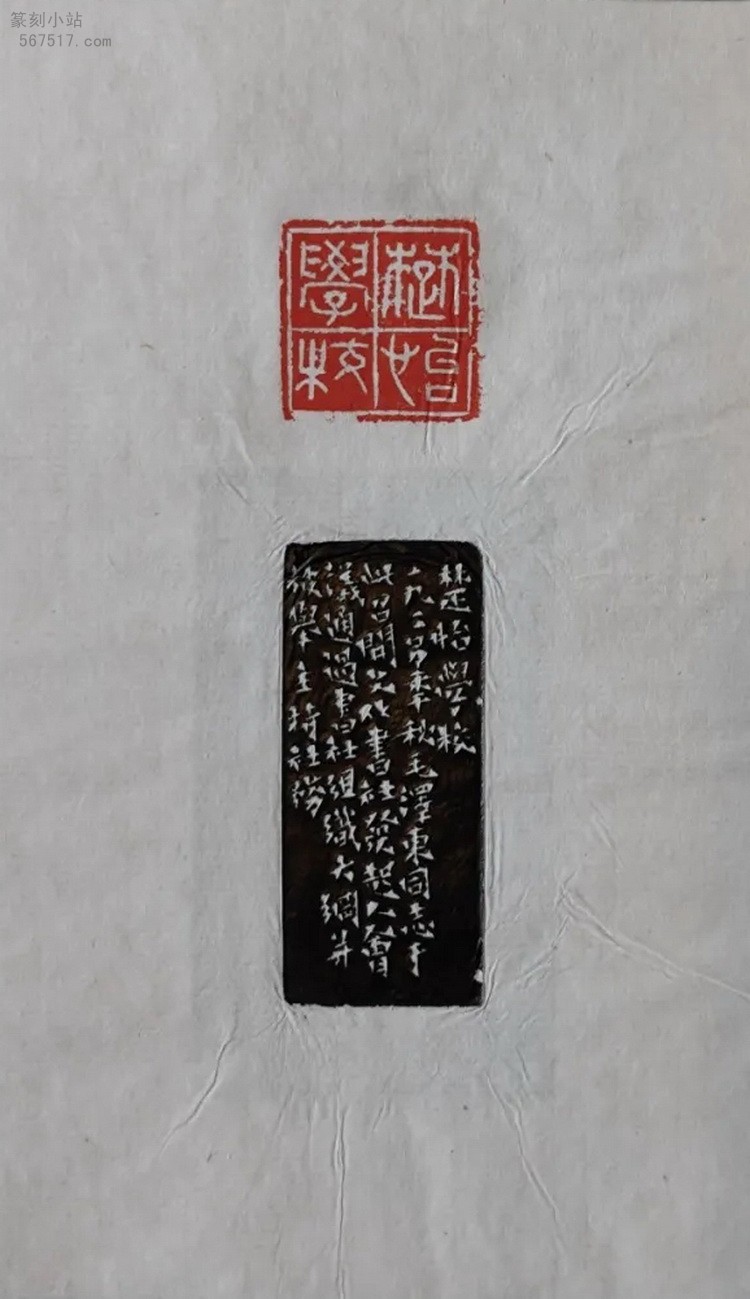 篆刻小站
567517.com
楚怡
學校
楚怡學校
一九二〇年秋毛澤東同志于
此召開文化書社發起人會
議通過書社組織大綱并
舉主持社務